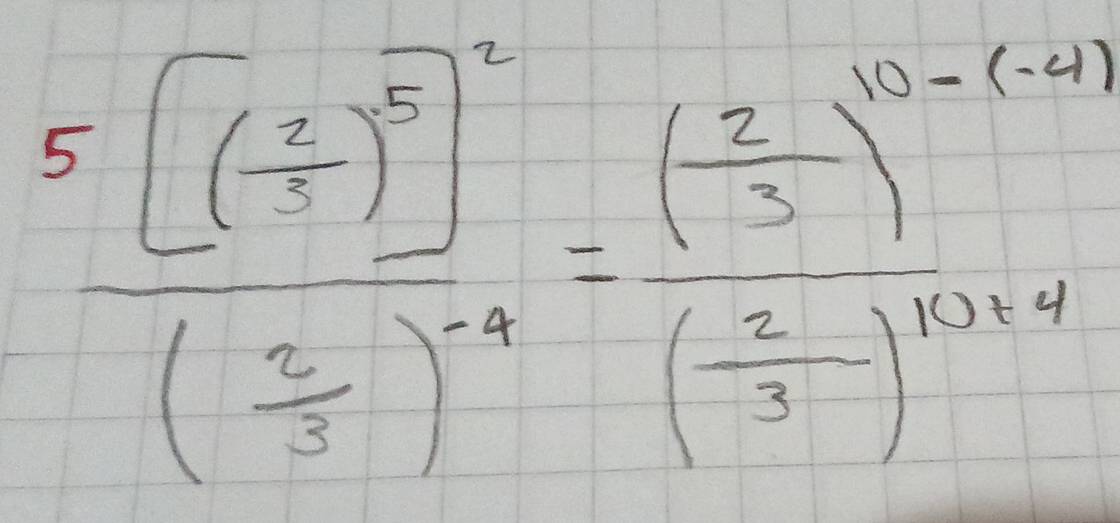 5 [(2/3)^5]^2 / (2/3)^-4 = (2/3)^10-(-4) / (2/3)^10+4